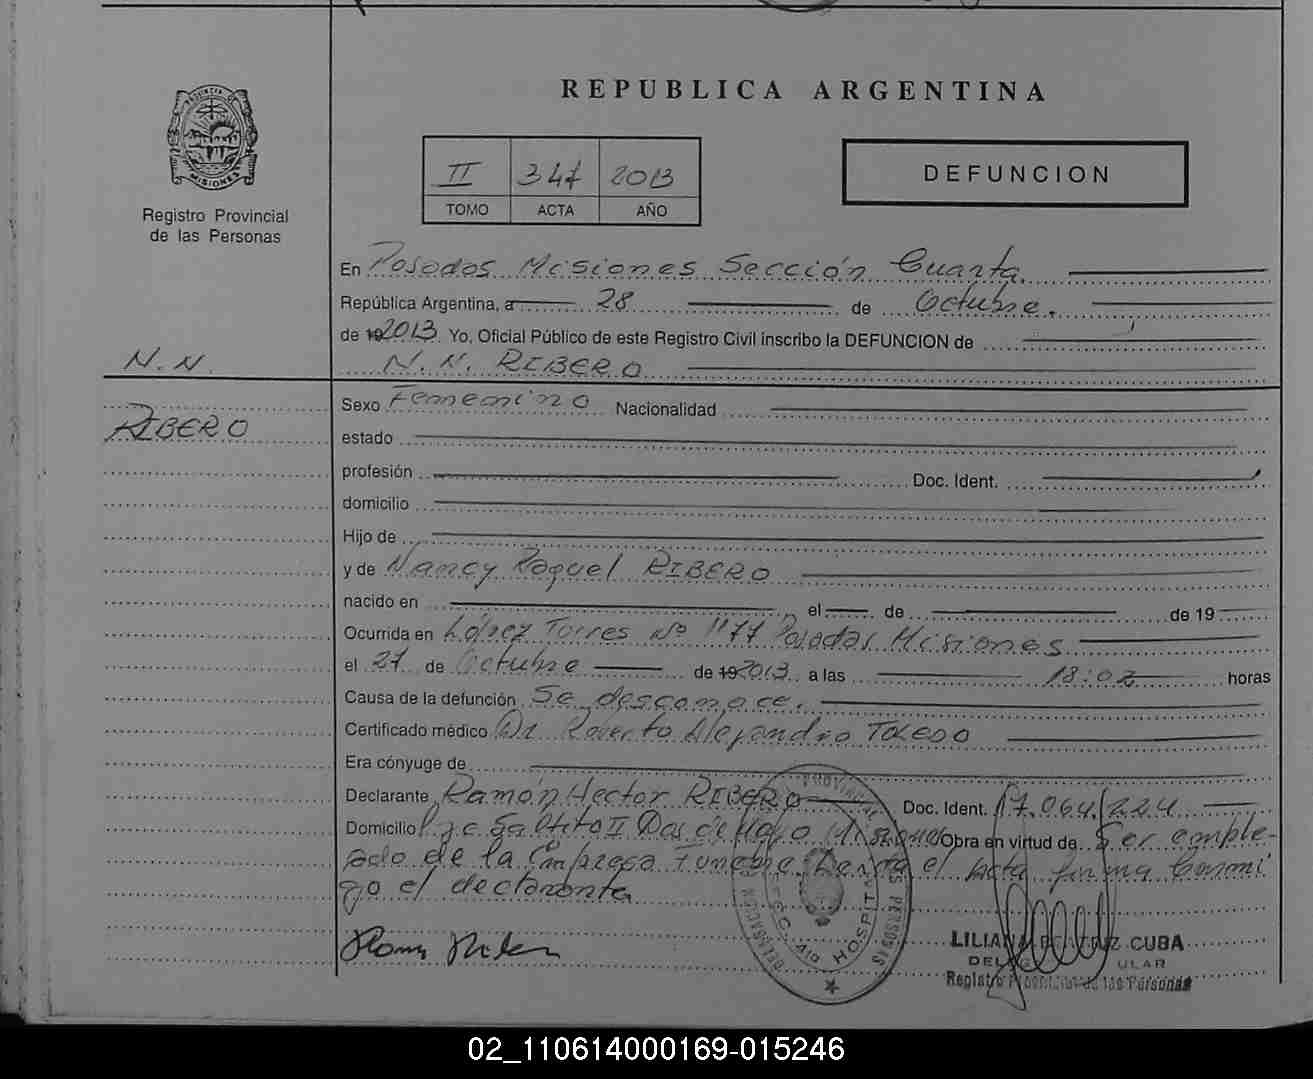 REPUBLICA ARGENTINA
PROVINCIA DE MISIONES
Registro Provincial
de las Personas
II 347 2013
TOMO ACTA AÑO
DEFUNCION
En Posadas Misiones Sección Cuarta.
República Argentina, a 28 de Octubre.
de 19 2013 Yo, Oficial Público de este Registro Civil inscribo la DEFUNCION de
N.N. RIBERO
N.N.
RIBERO
Sexo Femenino Nacionalidad
estado
profesión Doc. Ident.
domicilio
Hijo de
y de Nancy Raquel RIBERO
nacido en el de de 19
Ocurrida en López Torres Nº 1177 Posadas Misiones
el 27 de Octubre de 19 2013 a las 18:02 horas
Causa de la defunción Se desconoce.
Certificado médico Dr. Roberto Alejandro TOLEDO
Era cónyuge de
Declarante Ramón Hector RIBERO Doc. Ident. 17.064.224
Domicilio Saltito II Dos de Mayo Misiones Obra en virtud de Ser emple-
ado de la Empresa Funebre. el acta firma Conmi
go el declarante
LILIANA BEATRIZ CUBA
Registro Provincial de las Personas
PROVINCIAL
DELEGACION
SEC. 4ta HOSPITAL
PERSONAS
02_110614000169-015246